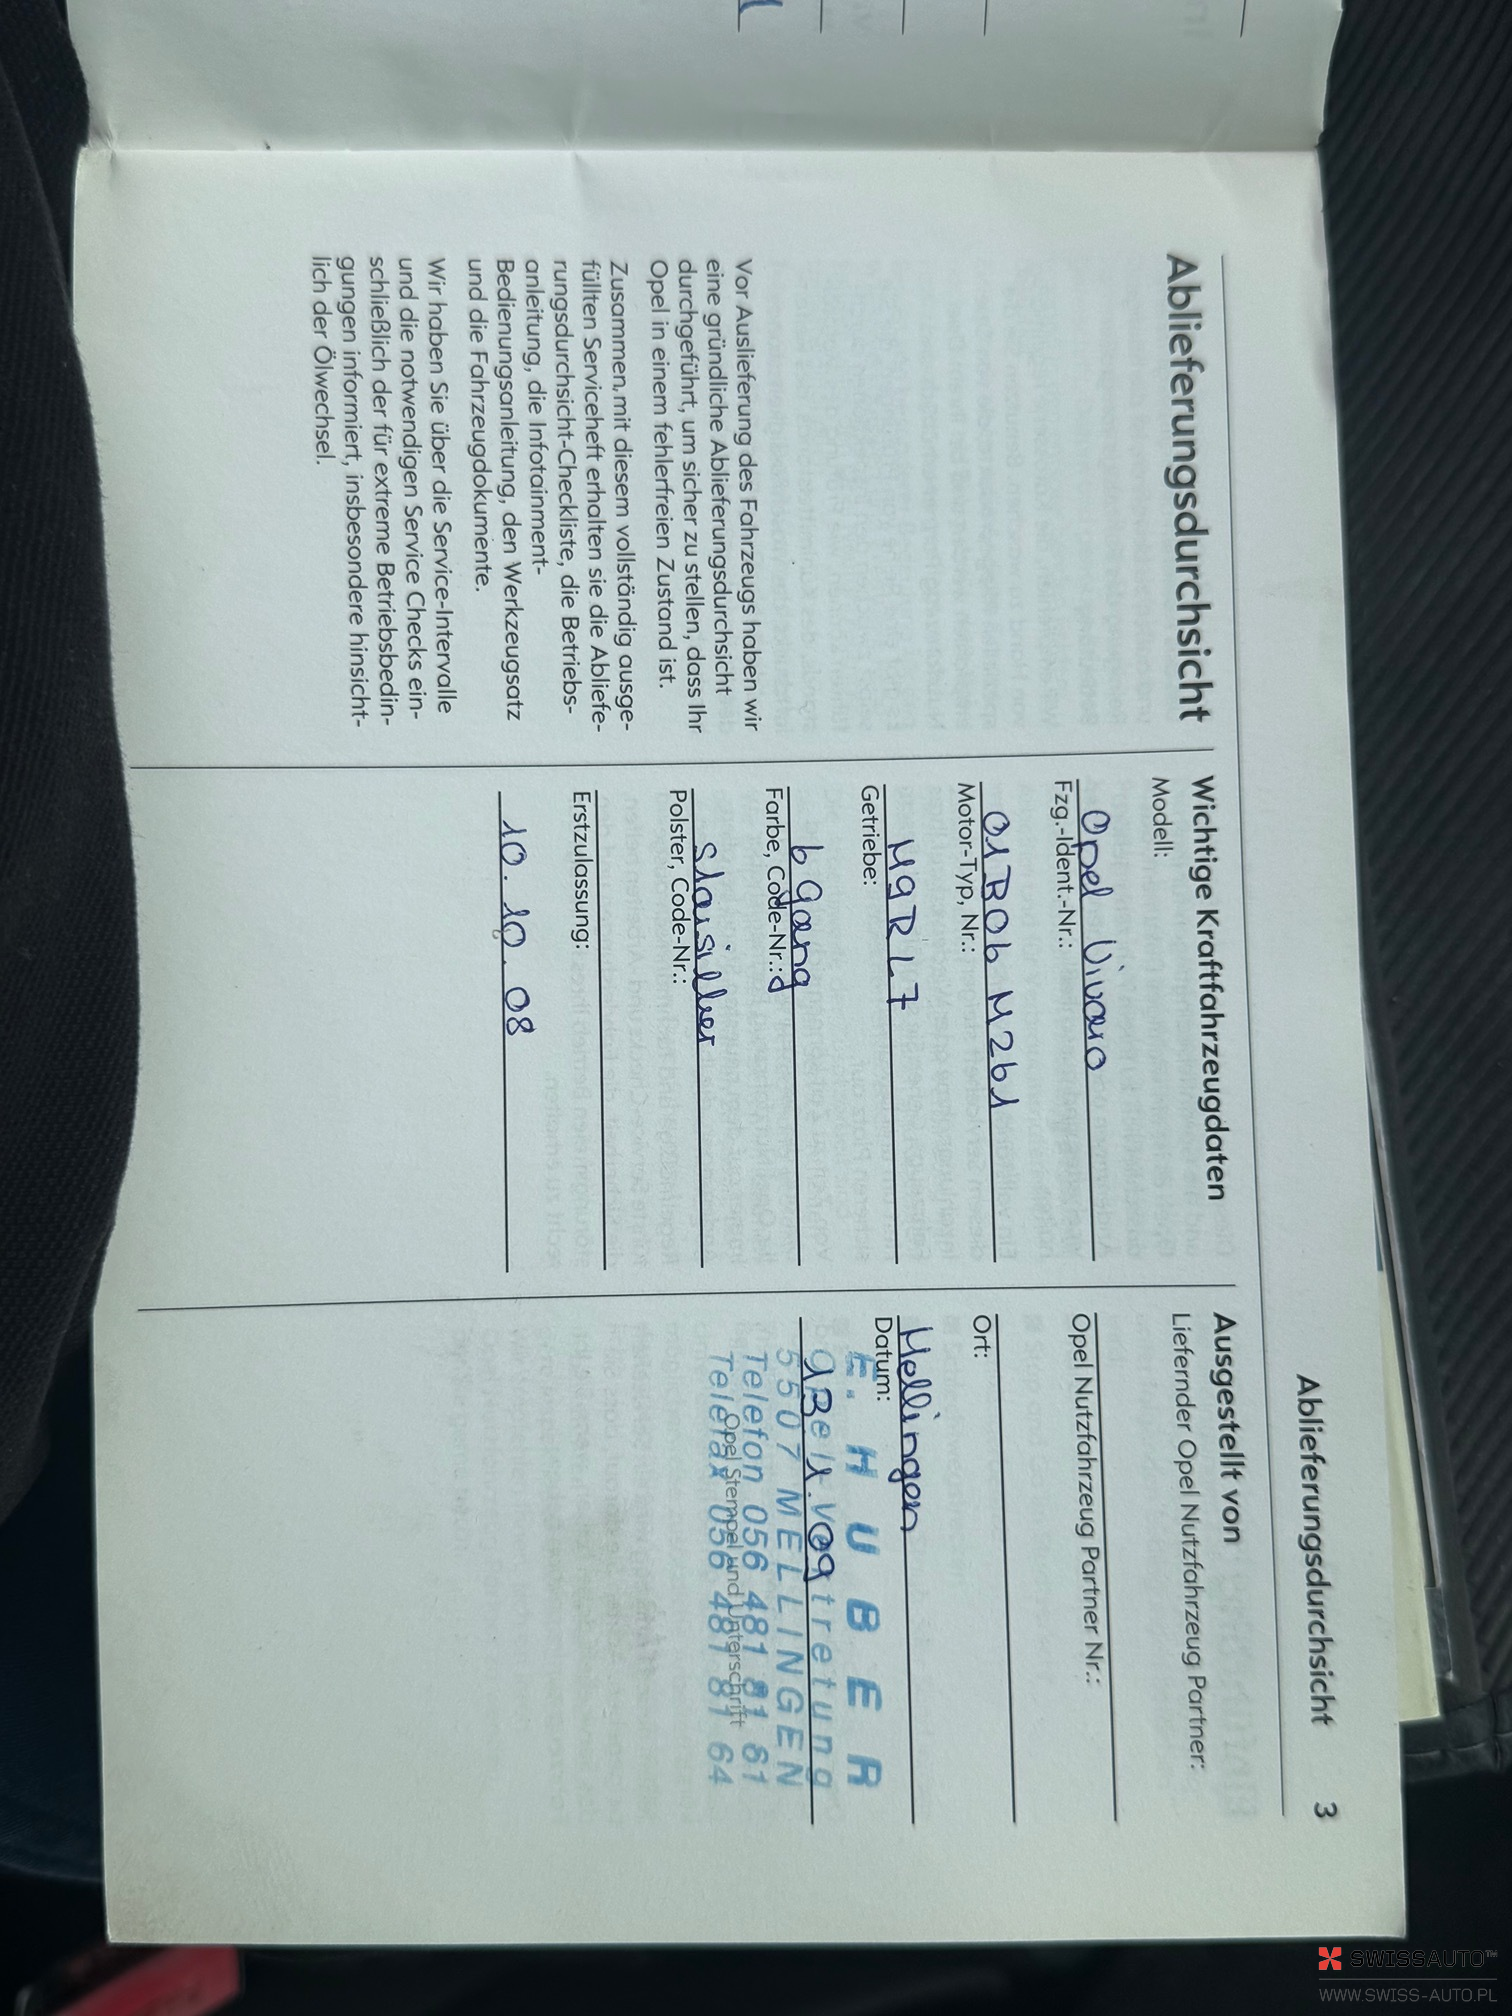 Ablieferungsdurchsicht 3
Ablieferungsdurchsicht
Vor Auslieferung des Fahrzeugs haben wir
eine gründliche Ablieferungsdurchsicht
durchgeführt, um sicher zu stellen, dass Ihr
Opel in einem fehlerfreien Zustand ist.
Zusammen mit diesem vollständig ausge-
füllten Serviceheft erhalten sie die Abliefe-
rungsdurchsicht-Checkliste, die Betriebs-
anleitung, die Infotainment-
Bedienungsanleitung, den Werkzeugsatz
und die Fahrzeugdokumente.
Wir haben Sie über die Service-Intervalle
und die notwendigen Service Checks ein-
schließlich der für extreme Betriebsbedin-
gungen informiert, insbesondere hinsicht-
lich der Ölwechsel.
Wichtige Kraftfahrzeugdaten
Modell:
Opel Vivaro
Fzg.-Ident.-Nr.:
Motor-Typ, Nr.:
M9R L7
Getriebe:
6 Gang
Farbe, Code-Nr.:
Polster, Code-Nr.:
Erstzulassung:
10.10.08
Ausgestellt von
Liefernder Opel Nutzfahrzeug Partner:
Opel Nutzfahrzeug Partner Nr.:
Ort:
Mellingen
Datum:
E. HUBER
5507 MELLINGEN
Telefon 056 481 81 61
Opel Stempel und Unterschrift
Telefax 056 481 81 64
SWISSAUTO™
WWW.SWISS-AUTO.PL